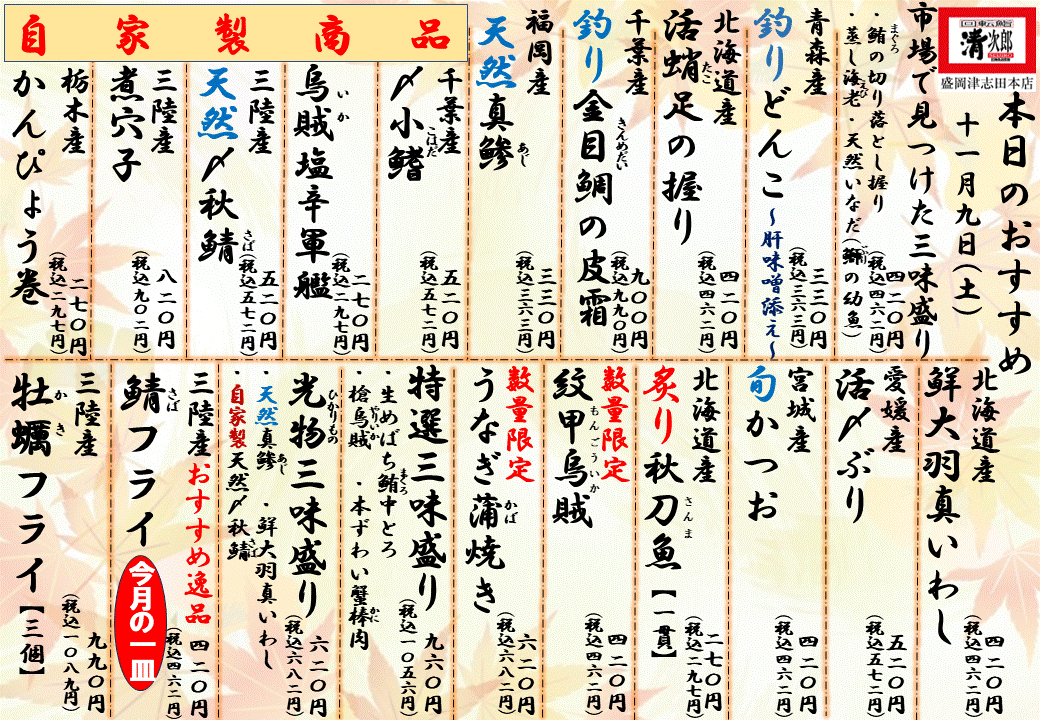 回転鮨
清次郎
盛岡津志田本店
本日のおすすめ
十一月九日(土)
市場で見つけた三味盛り
・鮪の切り落とし握り
まぐろ
・蒸し海老・天然いなだ(鰤の幼魚)
えび
ぶり
四二〇円
(税込四六二円)
青森産
釣りどんこ~肝味噌添え~
三三〇円
(税込三六三円)
北海道産
活蛸足の握り
たこ
四二〇円
(税込四六二円)
千葉産
釣り金目鯛の皮霜
きんめだい
九〇〇円
(税込九九〇円)
福岡産
天然真鯵
あじ
三三〇円
自家製商品
千葉産
〆小鰭
こはだ
五二〇円
(税込五七二円)
烏賊塩辛軍艦
いか
二七〇円
(税込二九七円)
三陸産
天然〆秋鯖
さば
五二〇円
(税込五七二円)
三陸産
煮穴子
八二〇円
(税込九〇二円)
栃木産
かんぴょう巻
二七〇円
(税込二九七円)
北海道産
鮮大羽真いわし
四二〇円
(税込四六二円)
愛媛産
活〆ぶり
五二〇円
(税込五七二円)
宮城産
旬かつお
四二〇円
(税込四六二円)
北海道産
炙り秋刀魚【一貫】
さんま
二七〇円
(税込二九七円)
数量限定
紋甲烏賊
もんごういか
四二〇円
(税込四六二円)
数量限定
うなぎ蒲焼き
かば
六二〇円
(税込六八二円)
特選三味盛り
・生めばち鮪中とろ
まぐろ
・槍烏賊・本ずわい蟹棒肉
やりいか
かに
九六〇円
(税込一〇五六円)
光物三味盛り
ひかりもの
・天然真鯵・鮮大羽真いわし
あじ
・自家製天然〆秋鯖
さば
六二〇円
(税込六八二円)
三陸産おすすめ逸品
鯖フライ
さば
今月の一皿
四二〇円
(税込四六二円)
三陸産
牡蠣フライ【三個】
かき
九九〇円
(税込一〇八九円)